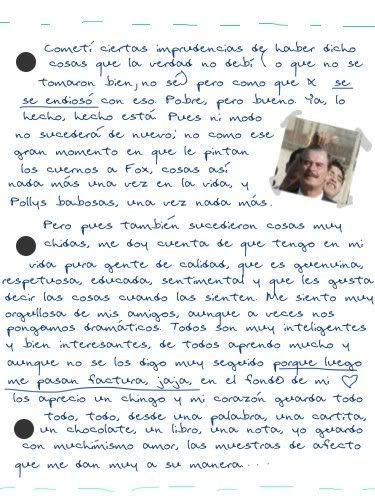 Cometí ciertas imprudencias de haber dicho
cosas que la verdad no debí (o que no se
tomaron bien, no sé) pero como que x se
se endiosó con eso. Pobre, pero bueno. Ya, lo
hecho, hecho está. Pues ni modo
no sucederá de nuevo; no como ese
gran momento en que le pintan
los cuernos a Fox, cosas así
nada más una vez en la vida, y
Pollys babosas, una vez nada más.
Pero pues también sucedieron cosas muy
chidas, me doy cuenta de que tengo en mi
vida pura gente de calidad, que es guenuina,
respetuosa, educada, sentimental y que les gusta
decir las cosas cuando las sienten. Me siento muy
orgullosa de mis amigos, aunque a veces nos
pongamos dramáticos. Todos son muy inteligentes
y bien interesantes, de todos aprendo mucho y
aunque no se los digo muy seguido porque luego
me pasan factura, jaja, en el fondo de mi ♡
los aprecio un chingo y mi corazón guarda todo
todo, todo, desde una palabra, una cartita,
un chocolate, un libro, una nota, yo guardo
con muchimismo amor, las muestras de afecto
que me dan muy a su manera...